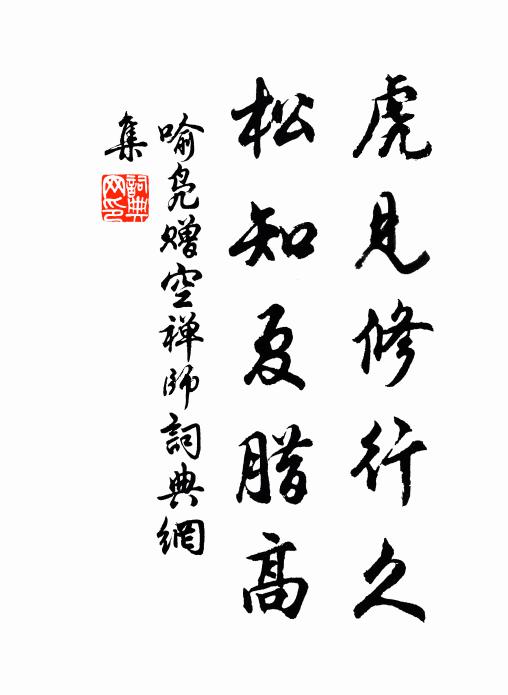 虎見修行久
松知夏腊高
喻凫赠空禅师詞典網
集
詞典网印